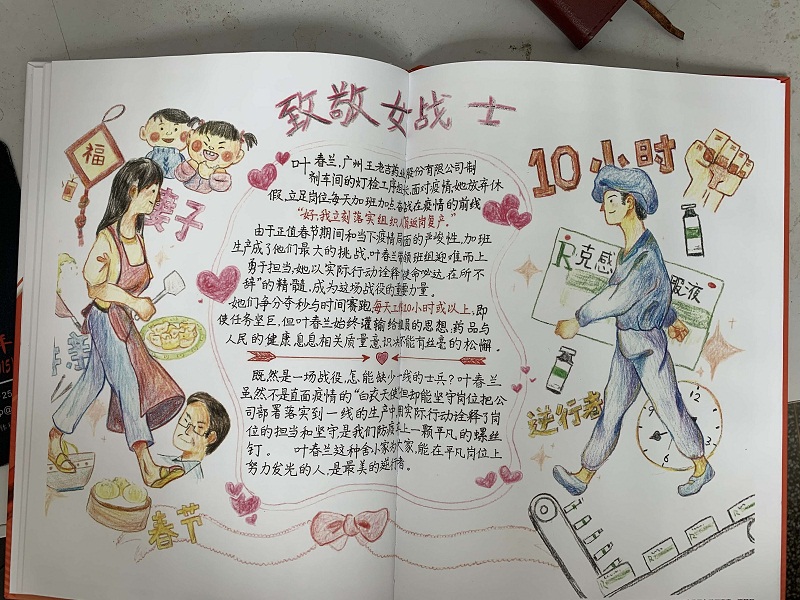 致敬女战士
福
妻子
叶春兰,广州王老吉药业股份有限公司制
剂车间的灯检工序组长,面对疫情,她放弃休
假,立足岗位,每天加班加点奋战在疫情的前线
"好,我立刻落实组织人员返岗复产。"
由于正值春节期间和当下疫情局面的严峻性,加班
生产成了他们最大的挑战,叶春兰带领班组迎难而上
勇于担当,她以实际行动诠释"使命必达,在所不
辞"的精髓,成为这场战役的重要力量。
她们争分夺秒与时间赛跑,每天工作10小时或以上,即
使任务坚巨,但叶春兰始终灌输给组员的思想,药品与
人民的健康息息相关质量意识决不能有丝毫的松懈。
既然是一场战役,怎能缺少一线的士兵?叶春兰
虽然不是直面疫情的"白衣天使"但却能坚守岗位把公
司部署落实到一线的生产中,用实际行动诠释了岗
位的担当和坚守,是我们防疫系上一颗平凡的螺丝
钉。 叶春兰这种舍小家为大家,能在平凡岗位上
努力发光的人,是最美的逆行者。
春节
10小时
克感
液
逆行者
12
3